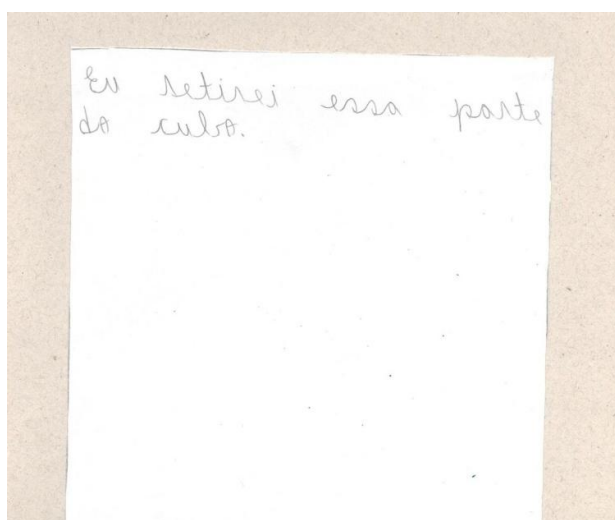 Eu retirei essa parte
do cubo.